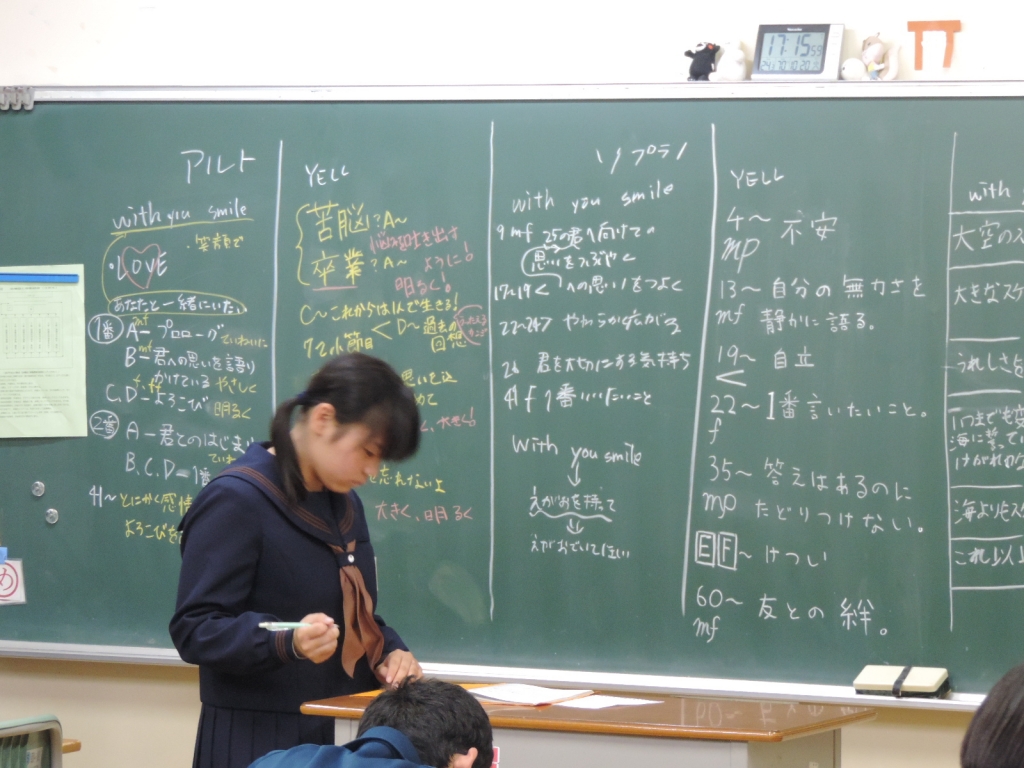 17:15 59
アルト
with you smile
・笑顔で
・LOVE
あなたと一緒にいたい
1番 mf
A－プロローグ ていねいに
B－mf 君への思いを語り
かけている やさしく
C.D－よろこび 明るく
2番 A－君とのはじまり
B.C.D＝1番
41～とにかく感情
よろこびを
YELL
苦脳？A～
悩みを吐き出す
ように！
卒業？A～
明るく！
C～これからは1人で生きる！
72小節目＜D～過去の
回想
忘れないよ
大きく、明るく
ソプラノ
with you smile
9 mf 25の君へ向けての
思いをつぶやく
17～19＜ への思い！をつよく
22～24 やわらかく広がる
26 君を大切にする気持ち
41 f 1番いいたいこと
with you smile
えがおを持って
えがおでいてほしい
YELL
4～ 不安
mp
13～ 自分の無力さを
mf 静かに語る。
19～ 自立
＜
22～ 1番言いたいこと。
f
35～ 答えはあるのに
mp たどりつけない。
E F～けつい
60～ 友との絆。
mf
with
大空の
大きなスケ
うれしさ
海よりも
これ以上
め